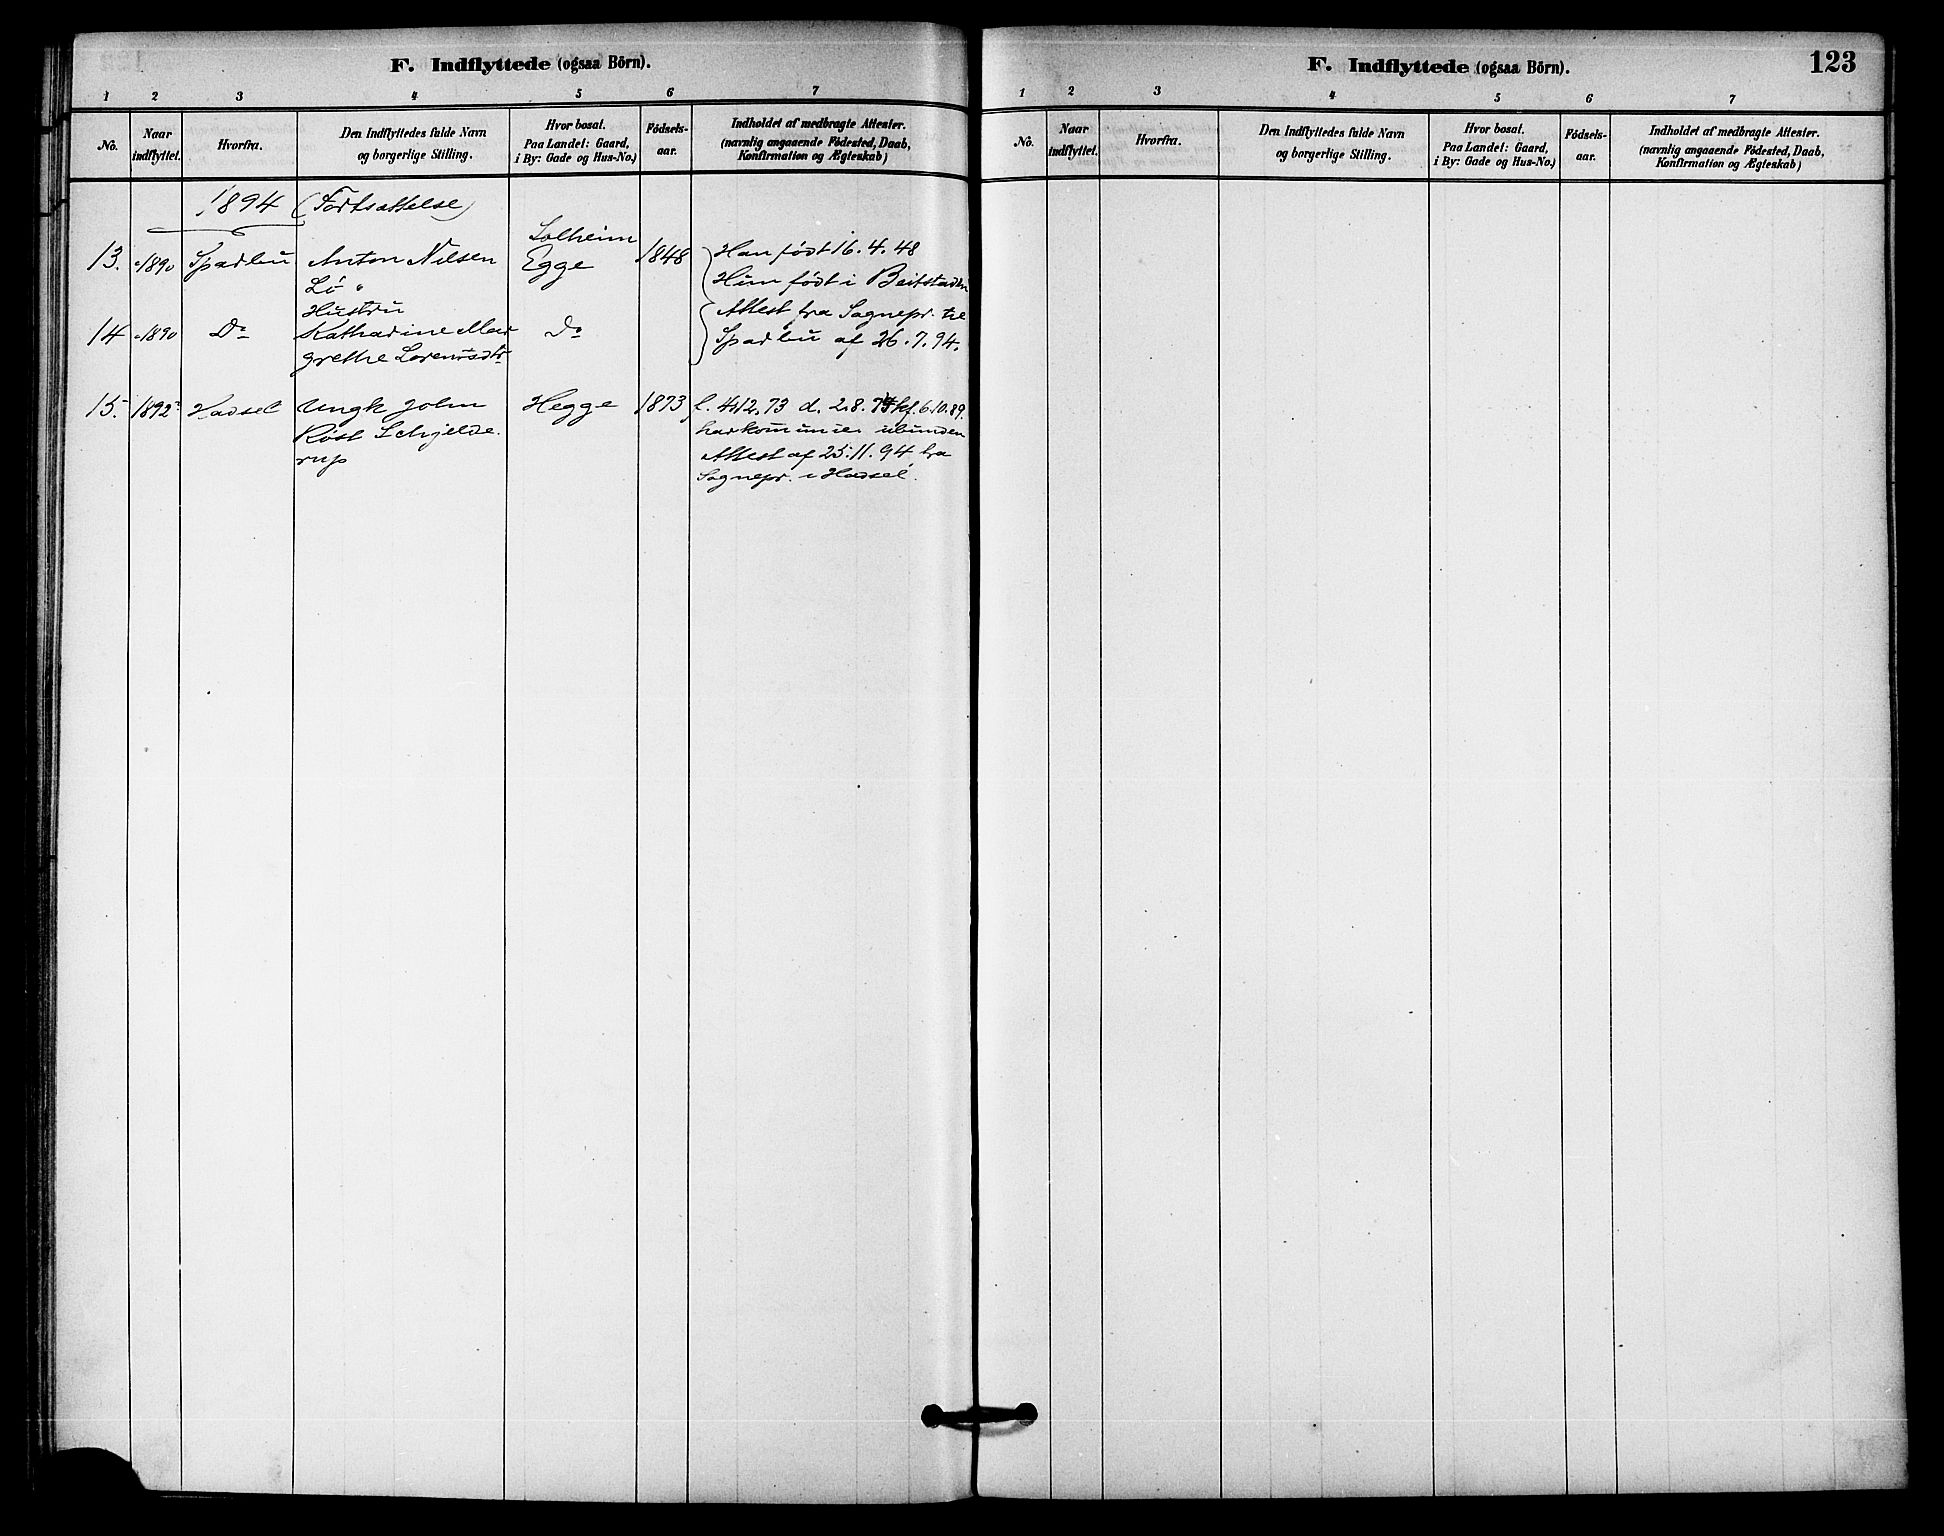 F. Indflyttede (ogsaa Börn).
1 2 3 4 5 6 7
No. Naar indflyttet. Hvorfra. Den Indflyttedes fulde Navn og borgerlige Stilling. Hvor bosat. Paa Landet: Gaard, i By: Gade og Hus-No.) Födsels-aar. Indholdet af medbragte Attester. (navnlig angaaende Födested, Daab, Konfirmation og Ægteskab)
1894 (Fortsættelse)
Solheim
13. 1890 Sparbu Anton Nilsen Egge 1848 Han født 16.4.48
Lö Hun født i Beitstaden
Hustru Attest fra Sognepr. til
14 1890 Do Katharine Mar Do Sparbu af 26.7.94.
grethe Lorentsdtr
15. 1892 Hadsel Ungk John Hegge 1873 f. 4.12.73 d. 2.8.74 kf. 6.10.89.
Röst Schjelde har kommunic. ubunden
rup Attest af 25.11.94 fra
Sognepr. i Hadsel.
F. Indflyttede (ogsaa Börn). 123
1 2 3 4 5 6 7
No. Naar indflyttet. Hvorfra. Den Indflyttedes fulde Navn og borgerlige Stilling. Hvor bosat. Paa Landet: Gaard, i By: Gade og Hus-No.) Födsels-aar. Indholdet af medbragte Attester. (navnlig angaaende Födested, Daab, Konfirmation og Ægteskab)